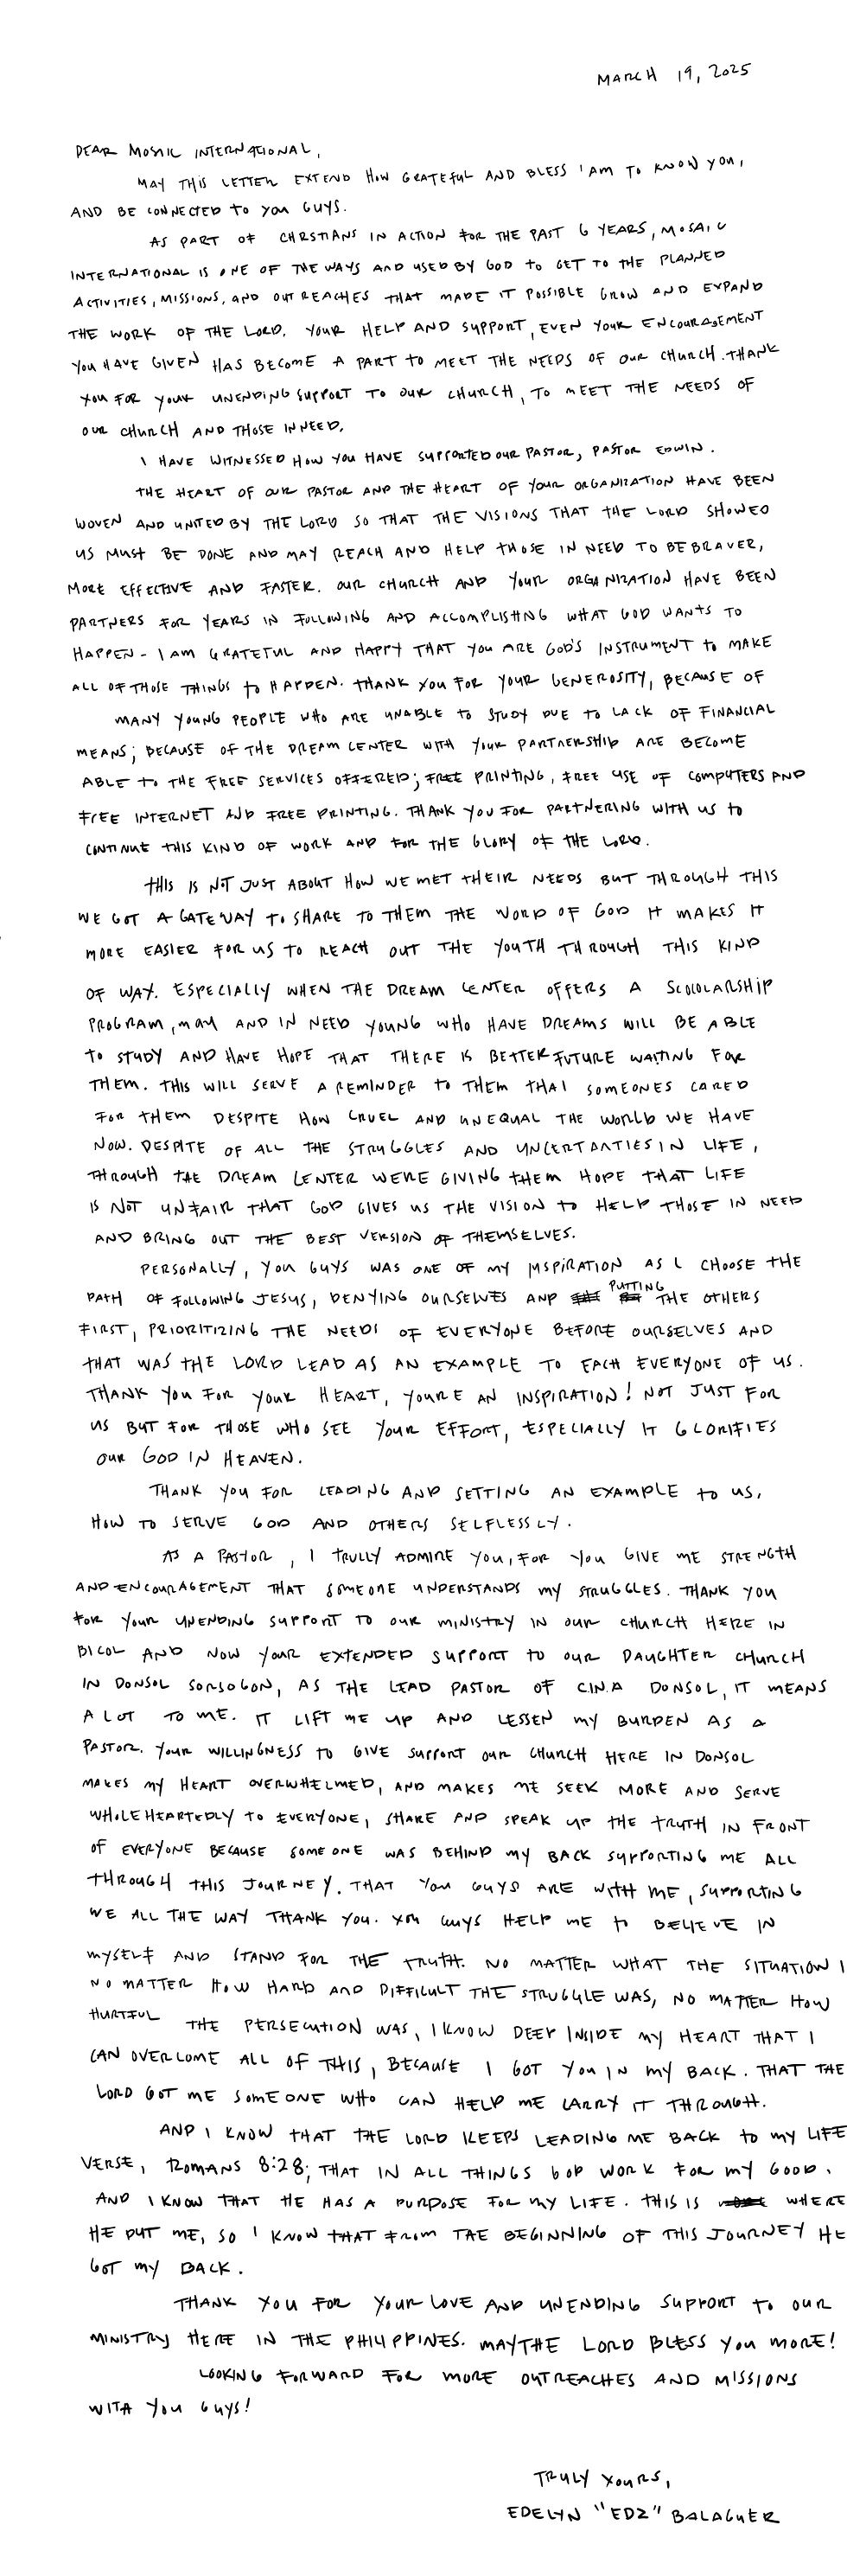 MARCH 19, 2025
DEAR MOSAIC INTERNATIONAL,
MAY THIS LETTER EXTEND HOW GRATEFUL AND BLESS I AM TO KNOW YOU,
AND BE CONNECTED TO YOU GUYS.
AS PART OF CHRSTIANS IN ACTION FOR THE PAST 6 YEARS, MOSAIC
INTERNATIONAL IS ONE OF THE WAYS AND USED BY GOD TO GET TO THE PLANNED
ACTIVITIES, MISSIONS, AND OUTREACHES THAT MADE IT POSSIBLE GROW AND EXPAND
THE WORK OF THE LORD. YOUR HELP AND SUPPORT, EVEN YOUR ENCOURAGEMENT
YOU HAVE GIVEN HAS BECOME A PART TO MEET THE NEEDS OF OUR CHURCH. THANK
YOU FOR YOUR UNENDING SUPPORT TO OUR CHURCH, TO MEET THE NEEDS OF
OUR CHURCH AND THOSE IN NEED.
I HAVE WITNESSED HOW YOU HAVE SUPPORTED OUR PASTOR, PASTOR EDWIN.
THE HEART OF OUR PASTOR AND THE HEART OF YOUR ORGANIZATION HAVE BEEN
WOVEN AND UNITED BY THE LORD SO THAT THE VISIONS THAT THE LORD SHOWED
US MUST BE DONE AND MAY REACH AND HELP THOSE IN NEED TO BE BRAVER,
MORE EFFECTIVE AND FASTER. OUR CHURCH AND YOUR ORGANIZATION HAVE BEEN
PARTNERS FOR YEARS IN FOLLOWING AND ACCOMPLISHNG WHAT GOD WANTS TO
HAPPEN - I AM GRATEFUL AND HAPPY THAT YOU ARE GOD'S INSTRUMENT TO MAKE
ALL OF THOSE THINGS TO HAPPEN. THANK YOU FOR YOUR GENEROSITY, BECAUSE OF
MANY YOUNG PEOPLE WHO ARE UNABLE TO STUDY DUE TO LACK OF FINANCIAL
MEANS; BECAUSE OF THE DREAM CENTER WITH YOUR PARTNERSHIP ARE BECOME
ABLE TO THE FREE SERVICES OFFERED; FREE PRINTING, FREE USE OF COMPUTERS AND
FREE INTERNET AND FREE PRINTING. THANK YOU FOR PARTNERING WITH US TO
CONTINUE THIS KIND OF WORK AND FOR THE GLORY OF THE LORD.
THIS IS NOT JUST ABOUT HOW WE MET THEIR NEEDS BUT THROUGH THIS
WE GOT A GATEWAY TO SHARE TO THEM THE WORD OF GOD IT MAKES IT
MORE EASIER FOR US TO REACH OUT THE YOUTH THROUGH THIS KIND
OF WAY. ESPECIALLY WHEN THE DREAM CENTER OFFERS A SCOCOLARSHIP
PROGRAM, MAY AND IN NEED YOUNG WHO HAVE DREAMS WILL BE ABLE
TO STUDY AND HAVE HOPE THAT THERE IS BETTER FUTURE WAITING FOR
THEM. THIS WILL SERVE A REMINDER TO THEM THAT SOMEONES CARED
FOR THEM DESPITE HOW CRUEL AND UNEQUAL THE WORLD WE HAVE
NOW. DESPITE OF ALL THE STRUGGLES AND UNCERTANTIES IN LIFE,
THROUGH THE DREAM CENTER WERE GIVING THEM HOPE THAT LIFE
IS NOT UNFAIR THAT GOD GIVES US THE VISION TO HELP THOSE IN NEED
AND BRING OUT THE BEST VERSION OF THEMSELVES.
PERSONALLY, YOU GUYS WAS ONE OF MY INSPIRATION AS I CHOOSE THE
PATH OF FOLLOWING JESUS, DENYING OURSELVES AND PUTTING THE OTHERS
FIRST, PRIORITIZING THE NEEDS OF EVERYONE BEFORE OURSELVES AND
THAT WAS THE LORD LEAD AS AN EXAMPLE TO EACH EVERYONE OF US.
THANK YOU FOR YOUR HEART, YOURE AN INSPIRATION! NOT JUST FOR
US BUT FOR THOSE WHO SEE YOUR EFFORT, ESPECIALLY IT GLORIFIES
OUR GOD IN HEAVEN.
THANK YOU FOR LEADING AND SETTING AN EXAMPLE TO US,
HOW TO SERVE GOD AND OTHERS SELFLESSLY.
AS A PASTOR, I TRULLY ADMIRE YOU, FOR YOU GIVE ME STRENGTH
AND ENCOURAGEMENT THAT SOMEONE UNDERSTANDS MY STRUGGLES. THANK YOU
FOR YOUR UNENDING SUPPORT TO OUR MINISTRY IN OUR CHURCH HERE IN
BICOL AND NOW YOUR EXTENDED SUPPORT TO OUR DAUGHTER CHURCH
IN DONSOL SORSOGON, AS THE LEAD PASTOR OF CIN.A DONSOL, IT MEANS
A LOT TO ME. IT LIFT ME UP AND LESSEN MY BURDEN AS A
PASTOR. YOUR WILLINGNESS TO GIVE SUPPORT OUR CHURCH HERE IN DONSOL
MAKES MY HEART OVERWHELMED, AND MAKES ME SEEK MORE AND SERVE
WHOLEHEARTEDLY TO EVERYONE, SHARE AND SPEAK UP THE TRUTH IN FRONT
OF EVERYONE BECAUSE SOMEONE WAS BEHIND MY BACK SUPPORTING ME ALL
THROUGH THIS JOURNEY. THAT YOU GUYS ARE WITH ME, SUPPORTING
WE ALL THE WAY THANK YOU. YOU GUYS HELP ME TO BELIEVE IN
MYSELF AND STAND FOR THE TRUTH. NO MATTER WHAT THE SITUATION I
NO MATTER HOW HARD AND DIFFICULT THE STRUGGLE WAS, NO MATTER HOW
HURTFUL THE PERSECUTION WAS, I KNOW DEEP INSIDE MY HEART THAT I
CAN OVERCOME ALL OF THIS, BECAUSE I GOT YOU IN MY BACK. THAT THE
LORD GOT ME SOMEONE WHO CAN HELP ME CARRY IT THROUGH.
AND I KNOW THAT THE LORD KEEPS LEADING ME BACK TO MY LIFE
VERSE, ROMANS 8:28; THAT IN ALL THINGS GOD WORK FOR MY GOOD.
AND I KNOW THAT HE HAS A PURPOSE FOR MY LIFE. THIS IS WHERE
HE PUT ME, SO I KNOW THAT FROM THE BEGINNING OF THIS JOURNEY HE
GOT MY BACK.
THANK YOU FOR YOUR LOVE AND UNENDING SUPPORT TO OUR
MINISTRY HERE IN THE PHILIPPINES. MAY THE LORD BLESS YOU MORE!
LOOKING FORWARD FOR MORE OUTREACHES AND MISSIONS
WITH YOU GUYS!
TRULY YOURS,
EDELYN "EDZ" BALAGUER